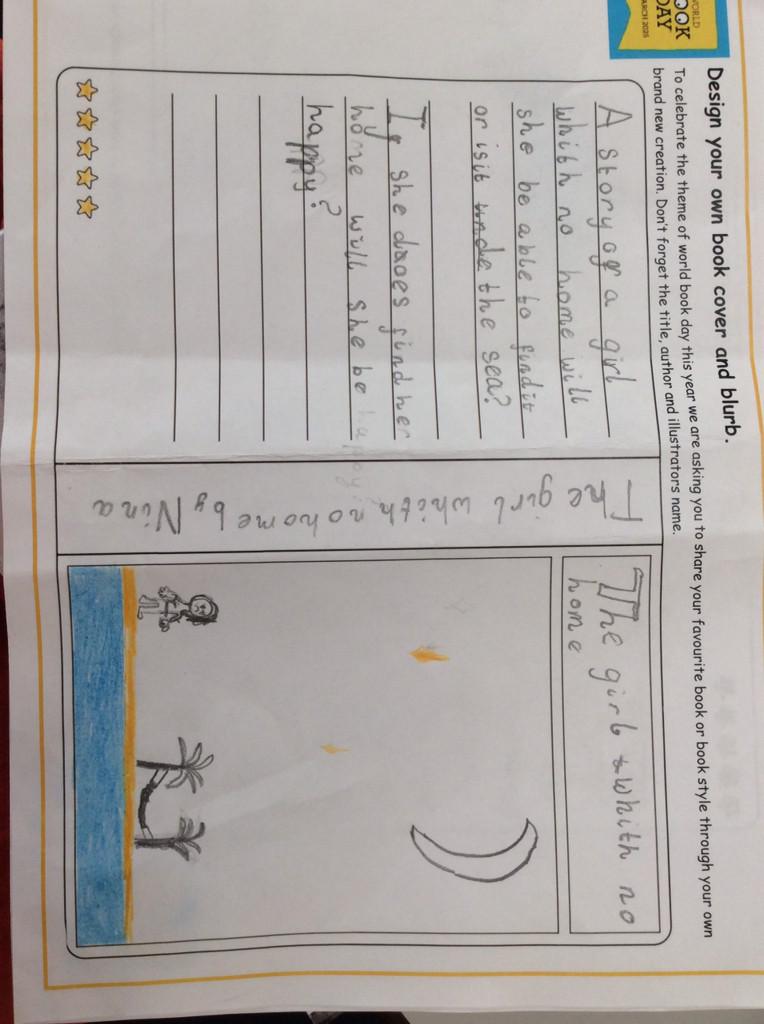 WORLD
BOOK
DAY
MARCH 2025
Design your own book cover and blurb.
To celebrate the theme of world book day this year we are asking you to share your favourite book or book style through your own
brand new creation. Don't forget the title, author and illustrators name.
A story of a girl
whith no home will
she be able to find it
or is it unde the sea?
If she daoes find her
home will she be happy?
happy?
The girl whith no home by Nina
The girl whith no
home